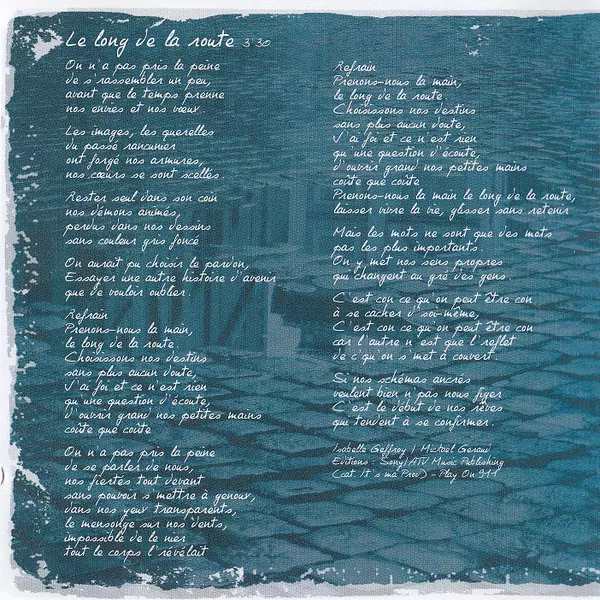 Le long de la route 3'30
On n'a pas pris la peine
de s'rassembler un peu,
avant que le temps prenne
nos envies et nos vœux
Les images, les querelles
du passé rancunier
ont forgé nos armures,
nos cœurs se sont scellés.
Rester seul dans son coin
nos démons animés,
perdus dans nos dessins
sans couleur gris foncé
On aurait pu choisir le pardon,
Essayer une autre histoire d'avenir
que de vouloir oublier.
Refrain
Prenons-nous la main,
le long de la route.
Choisissons nos destins
sans plus aucun doute,
J'ai foi et ce n'est rien
qu'une question d'écoute,
d'ouvrir grand nos petites mains
coûte que coûte
On n'a pas pris la peine
de se parler de nous,
nos fiertés tout devant
sans pouvoir s'mettre à genoux,
dans nos yeux transparents,
le mensonge sur nos dents,
impossible de le nier
tout le corps l'révélait
Refrain
Prenons-nous la main,
le long de la route.
Choisissons nos destins
sans plus aucun doute,
J'ai foi et ce n'est rien
qu'une question d'écoute,
d'ouvrir grand nos petites mains
coûte que coûte
Prenons-nous la main le long de la route,
laisser vivre la vie, glisser sans retenir
Mais les mots ne sont que des mots
pas les plus importants.
On y met nos sens propres
qui changent au gré des gens.
C'est con ce qu'on peut être con
à se cacher d'soi-même,
C'est con ce qu'on peut être con
car l'autre n'est que l'reflet
de c'qu'on s'met à couvert.
Si nos schémas ancrés
veulent bien n'pas nous figer
C'est le début de nos rêves
qui tendent à se confirmer.
Isabelle Geffroy / Mickaël Geraud
Editions : Sony/ATV Music Publishing
(cat. It's ma Prod) - Play On 911